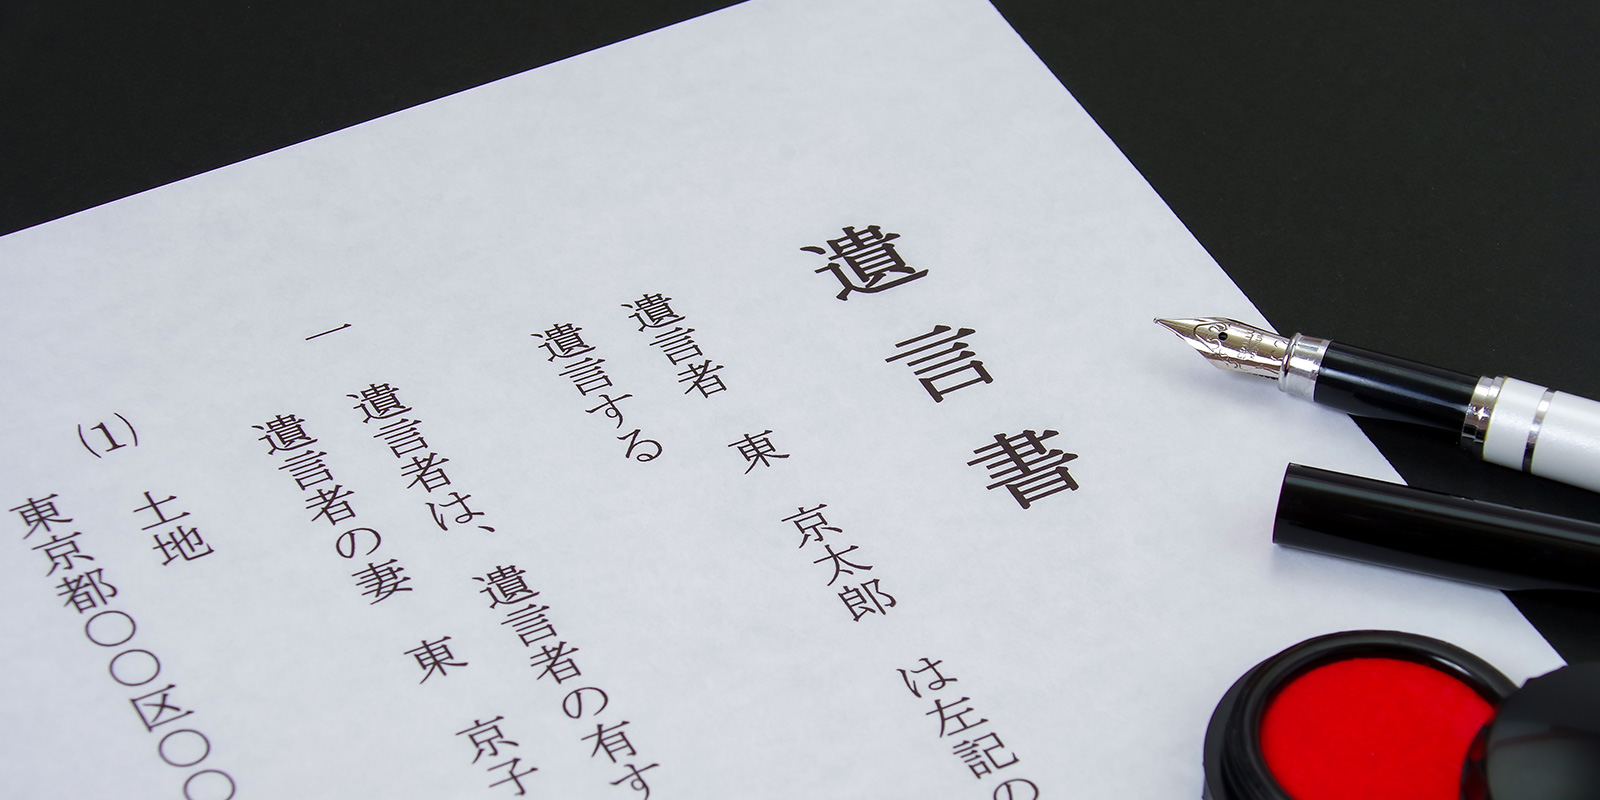 遺言書
遺言者　東　京太郎　は左記の
遺言する
一　遺言者は、遺言者の有す
遺言者の妻　東　京子
(1)　土地
東京都〇〇区〇〇